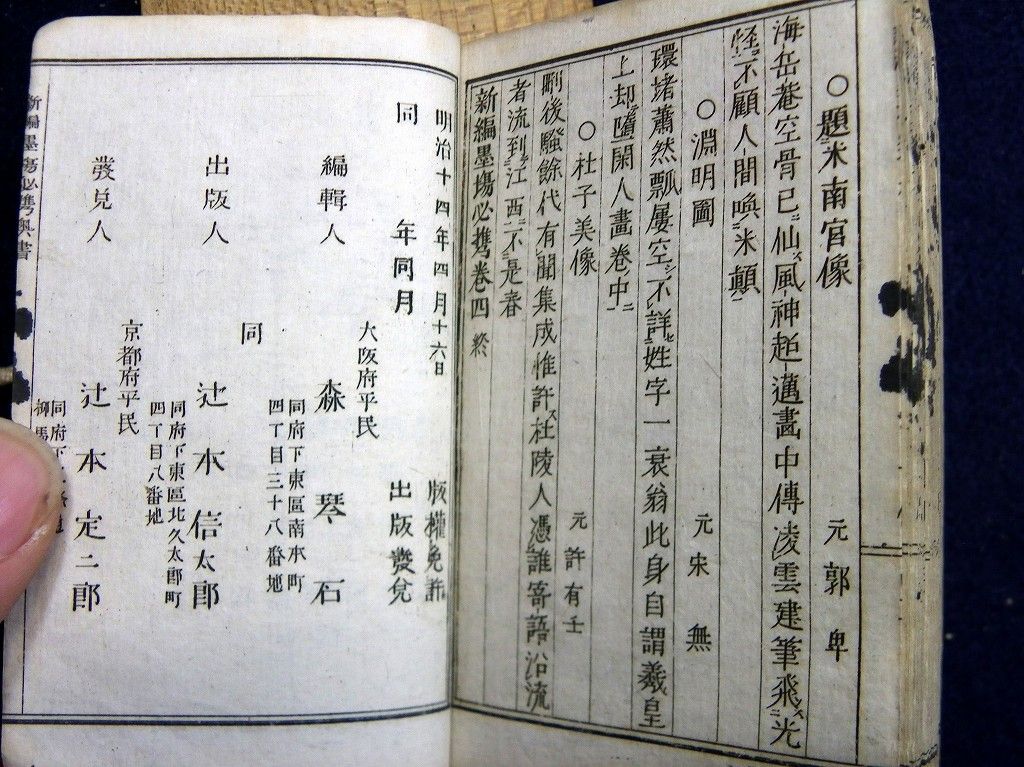 ○題米南宮像 元郭畀
海岳菴空骨已仙風神超邁畫中傳凌雲建筆飛光
怪不顧人間喚米顛
○淵明圖 元宋無
環堵蕭然瓢屢空不詳姓字一衰翁此身自謂羲皇
上却墮閑人畫卷中
○杜子美像 元許有壬
刪後騷餘代有聞集成惟許杜陵人憑誰寄語沿流
者流到江西不是春
新編墨場必携卷四終
明治十四年四月十六日 版權免許
同 年同月 出版發兌
大阪府平民
編輯人 森琴石
同府下東區南本町
四丁目三十八番地
同
出版人 辻本信太郎
同府下東區北久太郎町
四丁目八番地
京都府平民
發兌人 辻本定二郎
同府下
柳馬
新編墨場必携奧書